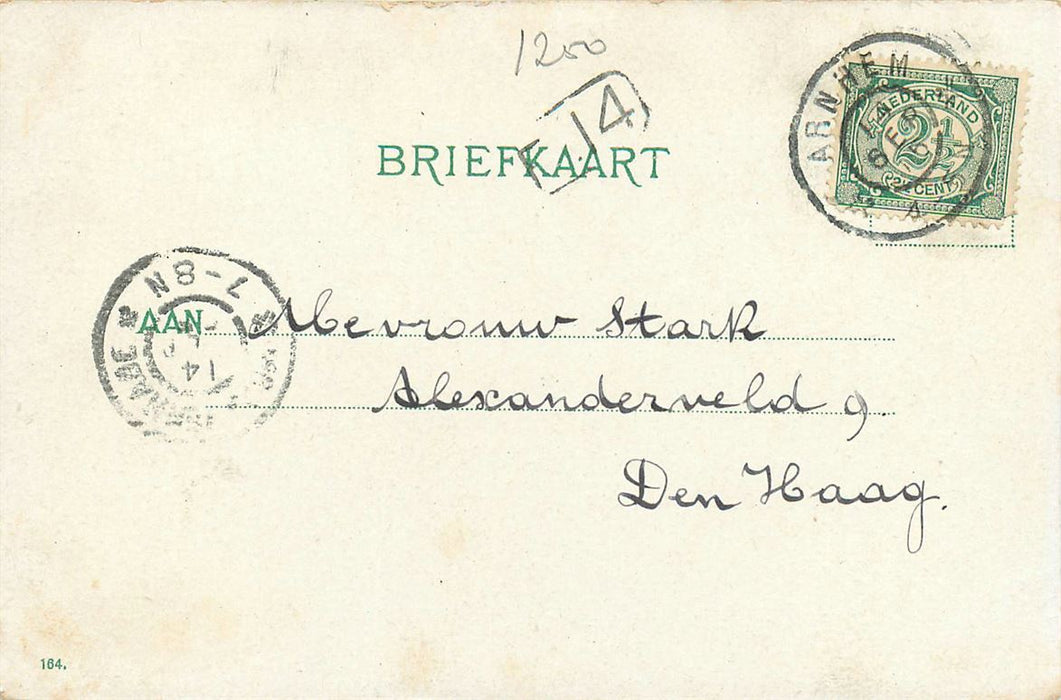 1200
F 14
BRIEFKAART
ARNHEM
NEDERLAND
2½
2½ CENT
7-8N
14
AAN Mevrouw Stark
Alexanderveld 9
Den Haag.
164.